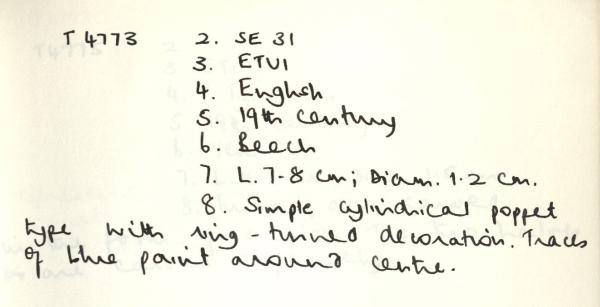 T 4773 2. SE 31
3. ETUI
4. English
5. 19th century
6. Beech
7. L. 7-8 cm; Diam. 1.2 cm.
8. Simple cylindrical poppet
type with ring-turned decoration. Traces
of blue paint around centre.